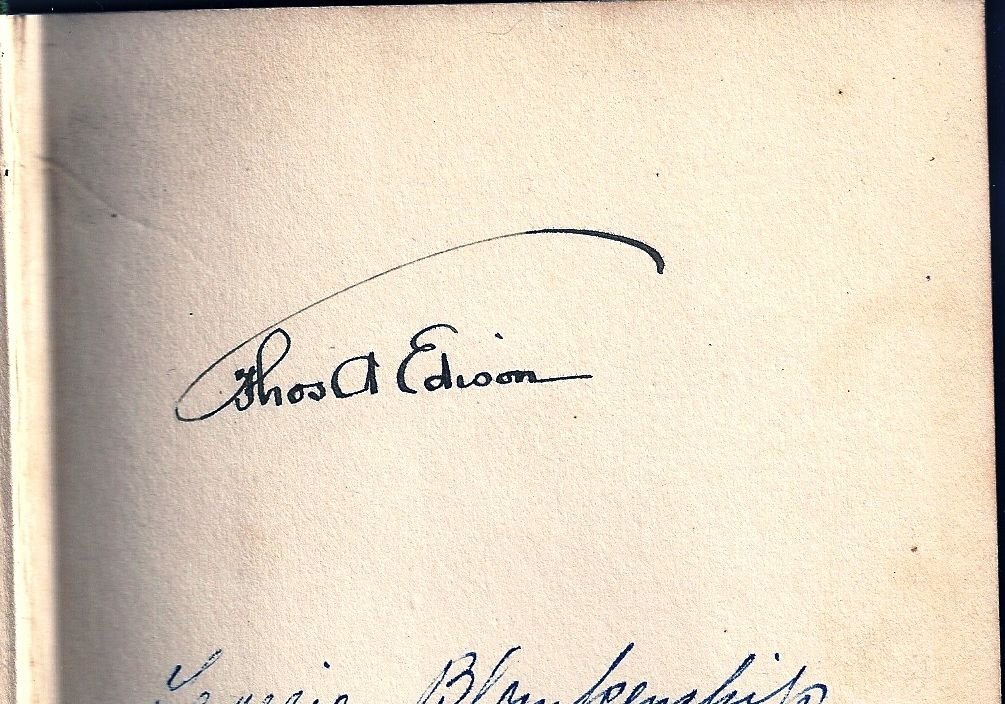 Thos A Edison
Blankenship